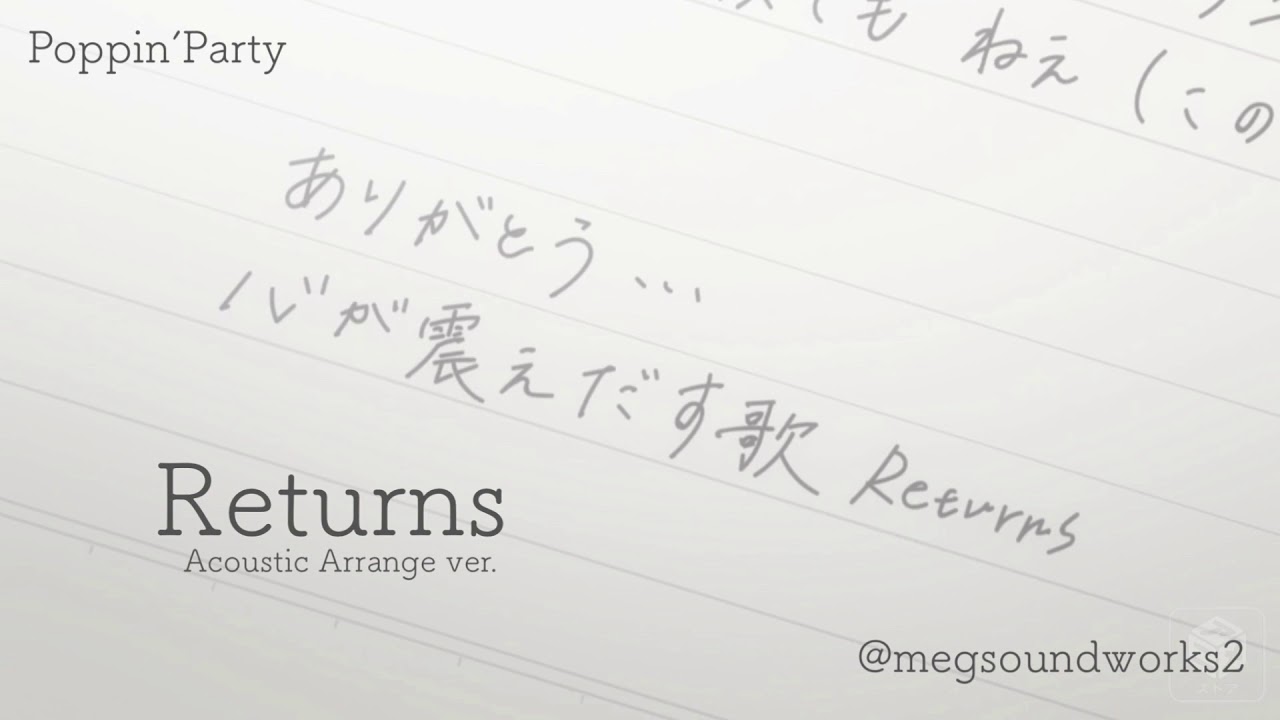 Poppin'Party
ても ねぇ (この
ありがとう...
心が震えだす歌 Returns
Returns
Acoustic Arrange ver.
@megsoundworks2
ストア